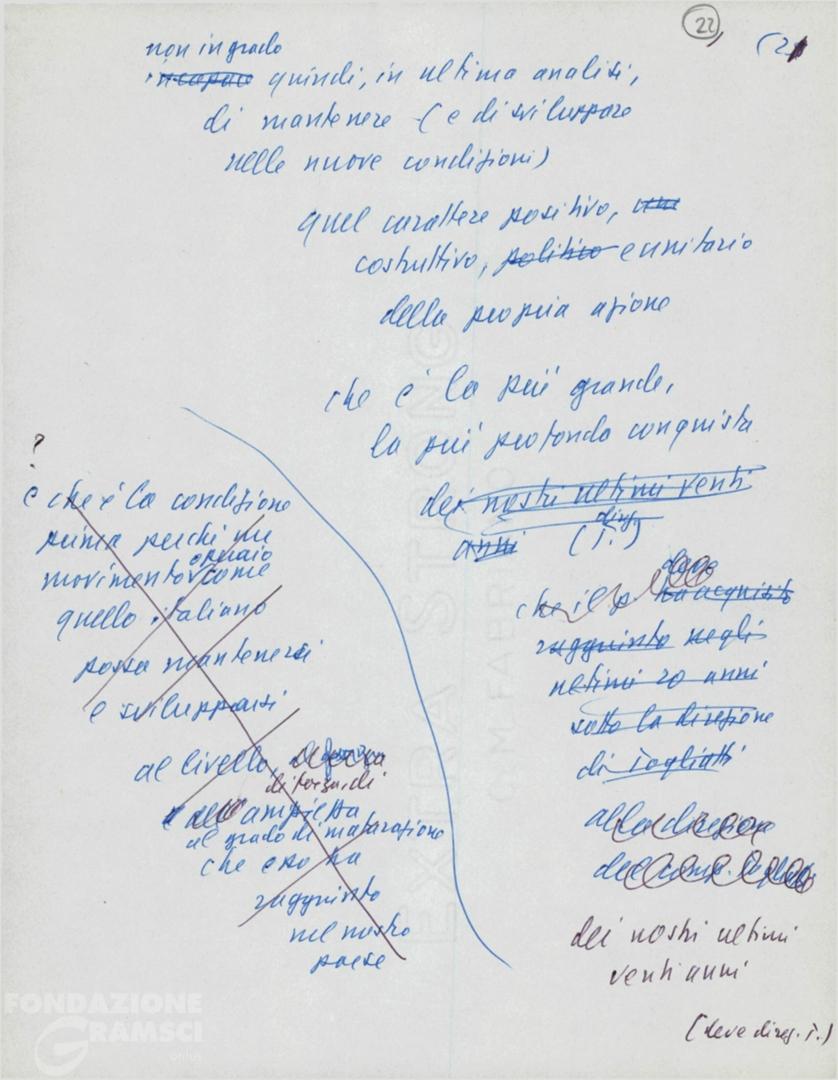 22
(21
non in grado
incapace quindi, in ultima analisi,
di mantenere (e di sviluppare
nelle nuove condizioni)
quel carattere positivo, una
costruttivo, politico e unitario
della propria azione
che è la più grande,
la più profonda conquista
dei nostri ultimi venti
anni (T.)
direz.
che il p deve
ha acquisito
raggiunto negli
ultimi 20 anni
sotto la direzione
di Togliatti
alla direzione
del comp. Togliatti
dei nostri ultimi
venti anni
(deve direz. T.)
?
e che è la condizione
prima perché un
operaio
movimento come
quello italiano
possa mantenersi
e svilupparsi
al livello
di forza, di
ampiezza
al grado di maturazione
che esso ha
raggiunto
nel nostro
paese
EXTRA STRONG
FONDAZIONE
GRAMSCI
onlus